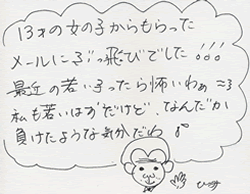 13才の女の子からもらった
メールにぶっ飛びでした!!!
最近の若い子ったら怖いわぁ
私も若いはずだけど、なんだか
負けたような気分だわ